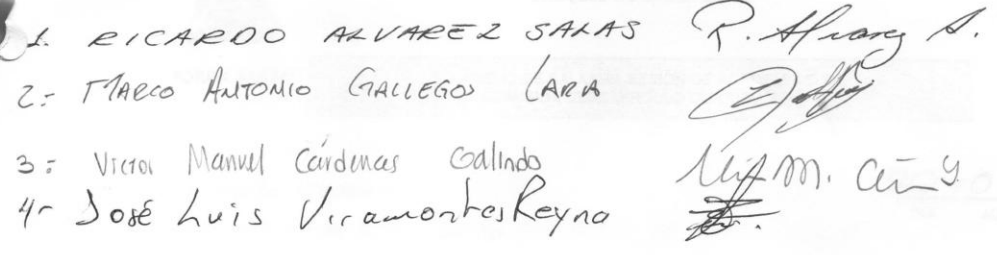 1. RICARDO ALVAREZ SALAS R. Alvarez S.
2:- MARCO ANTONIO GALLEGOS LARA
3: Victor Manuel Cárdenas Galindo
4- José Luis Viramontes Reyna